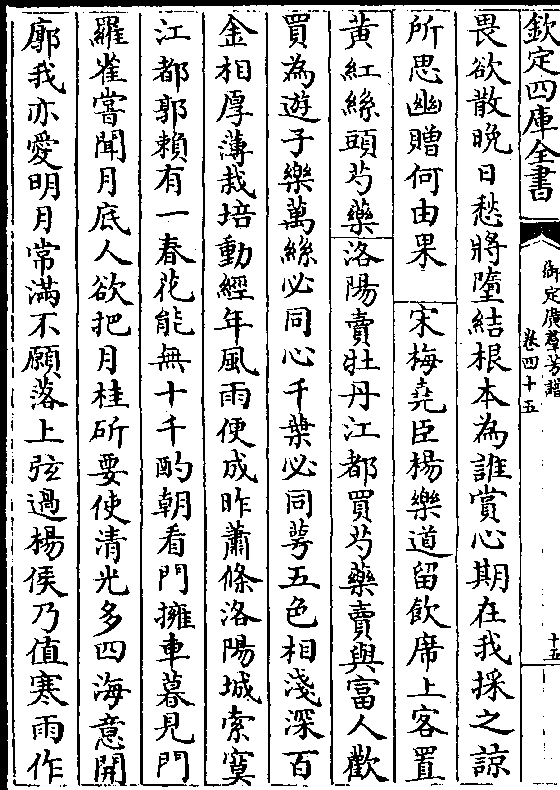 欽定四庫全書
御定廣羣芳譜
卷四十五
十五
畏欲散晚日愁將墮結根本為誰賞心期在我採之諒
所思幽贈何由果 宋梅堯臣楊樂道留飲席上客置
黃紅絲頭芍藥洛陽賣牡丹江都買芍藥賣與富人歡
買為遊子樂萬絲必同心千葉必同萼五色相淺深百
金相厚薄栽培動經年風雨便成昨蕭條洛陽城索寞
江都郭賴有一春花能無十千酌朝看門擁車暮見門
羅雀嘗聞月底人欲把月桂斫要使清光多四海意開
廓我亦愛明月常滿不願落上弦過楊侯乃值寒雨作